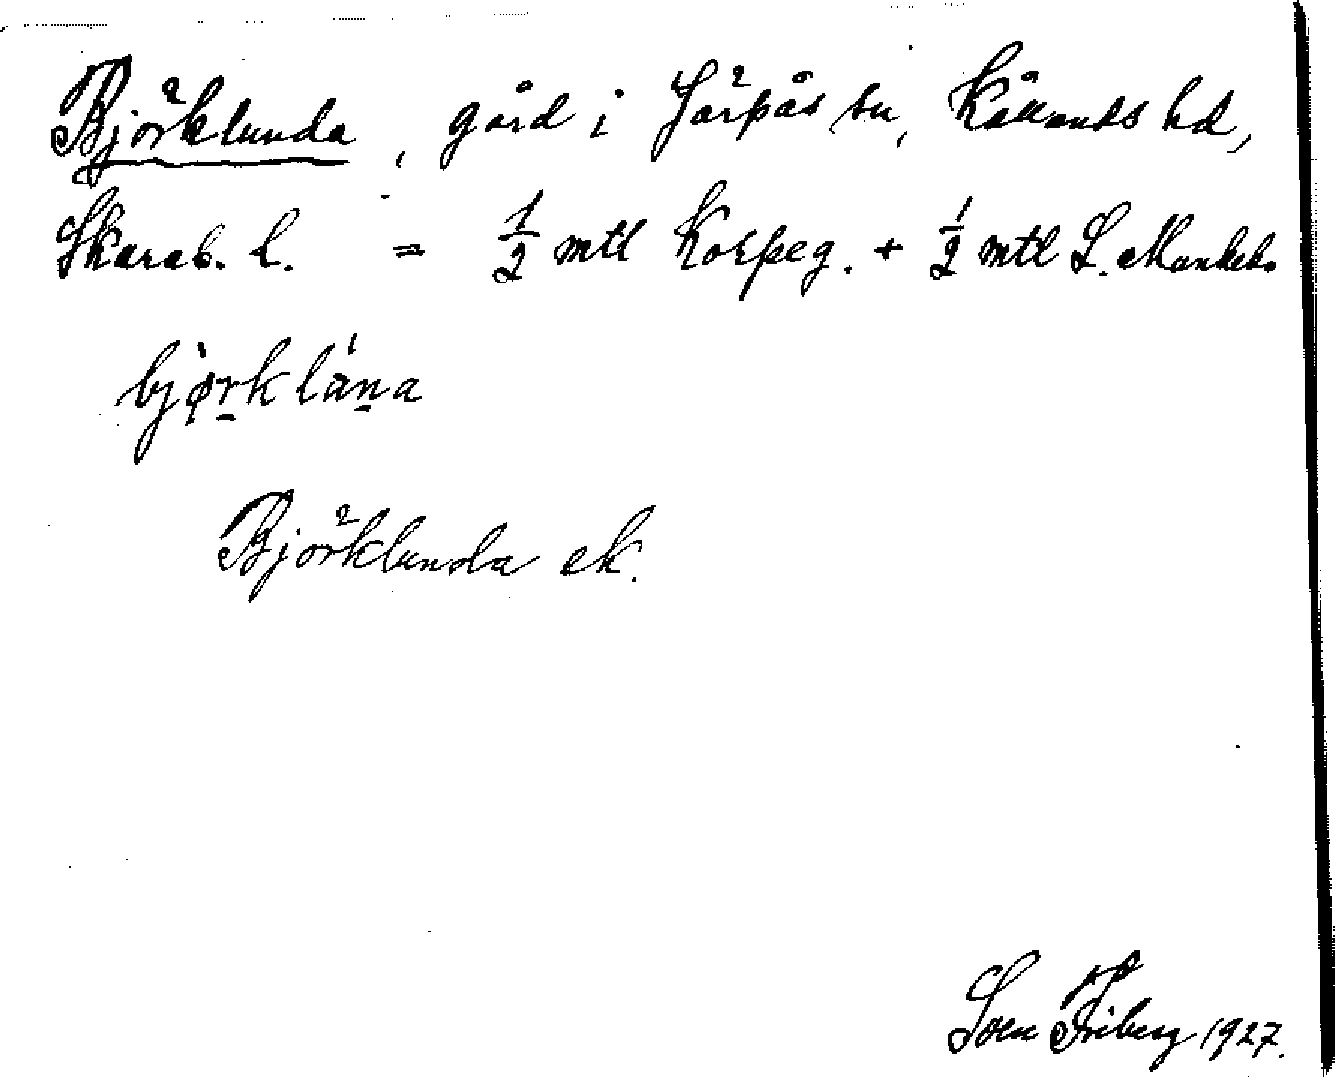 Björklunda, gård i Järpås sn, Kållands hd,
Skarab. l. = 1/2 mtl Korpeg. + 1/2 mtl L. Mankeb.
bjø̀rk lána
Björklunda ek.
Sven Friberg 1927.